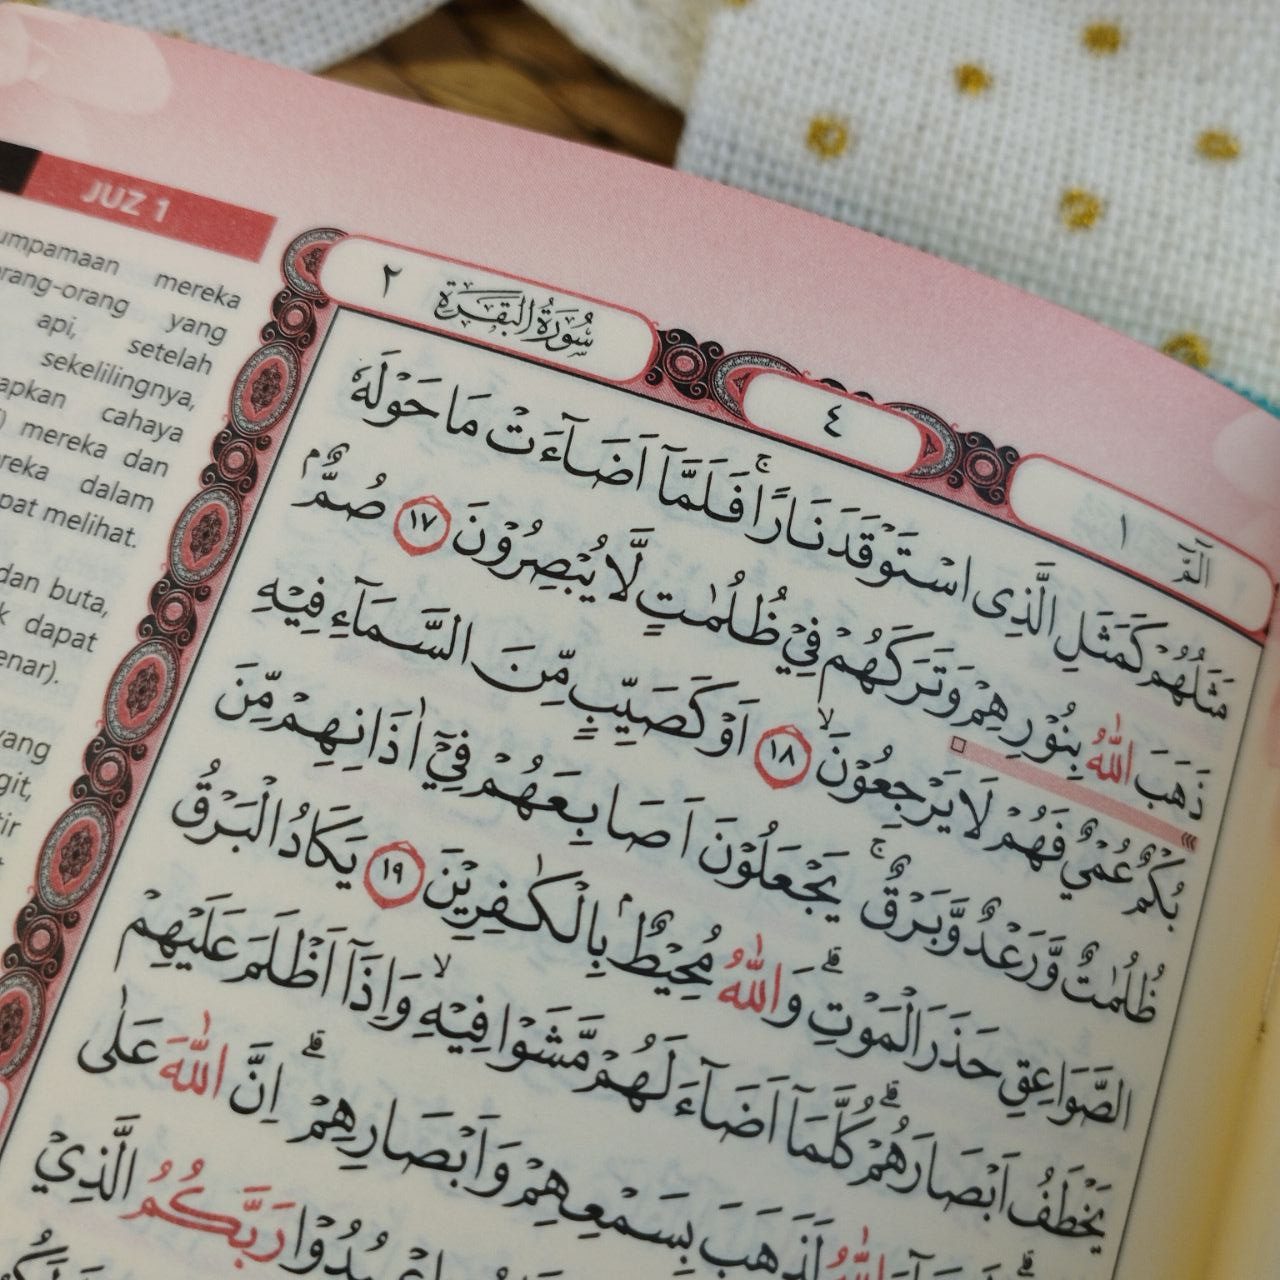 JUZ 1
umpamaan mereka
rang-orang yang
api, setelah
sekelilingnya,
apkan cahaya
) mereka dan
reka dalam
pat melihat.
dan buta,
k dapat
enar).
yang
git,
tir
الۤمّۤ ١
٤
سُورَةُ الْبَقَرَةِ ٢
مَثَلُهُمْ كَمَثَلِ الَّذِى اسْتَوْقَدَ نَارًاۚ فَلَمَّآ اَضَاۤءَتْ مَا حَوْلَهٗ
ذَهَبَ اللّٰهُ بِنُوْرِهِمْ وَتَرَكَهُمْ فِيْ ظُلُمٰتٍ لَّا يُبْصِرُوْنَ ١٧ صُمٌّۢ
بُكْمٌ عُمْيٌ فَهُمْ لَا يَرْجِعُوْنَۙ ١٨ اَوْ كَصَيِّبٍ مِّنَ السَّمَاۤءِ فِيْهِ
ظُلُمٰتٌ وَّرَعْدٌ وَّبَرْقٌۚ يَجْعَلُوْنَ اَصَابِعَهُمْ فِيْٓ اٰذَانِهِمْ مِّنَ
الصَّوَاعِقِ حَذَرَ الْمَوْتِۗ وَاللّٰهُ مُحِيْطٌۢ بِالْكٰفِرِيْنَ ١٩ يَكَادُ الْبَرْقُ
يَخْطَفُ اَبْصَارَهُمْۗ كُلَّمَآ اَضَاۤءَ لَهُمْ مَّشَوْا فِيْهِۙ وَاِذَآ اَظْلَمَ عَلَيْهِمْ
اللّٰهُ لَذَهَبَ بِسَمْعِهِمْ وَاَبْصَارِهِمْۗ اِنَّ اللّٰهَ عَلٰى
رَبَّكُمُ الَّذِيْ